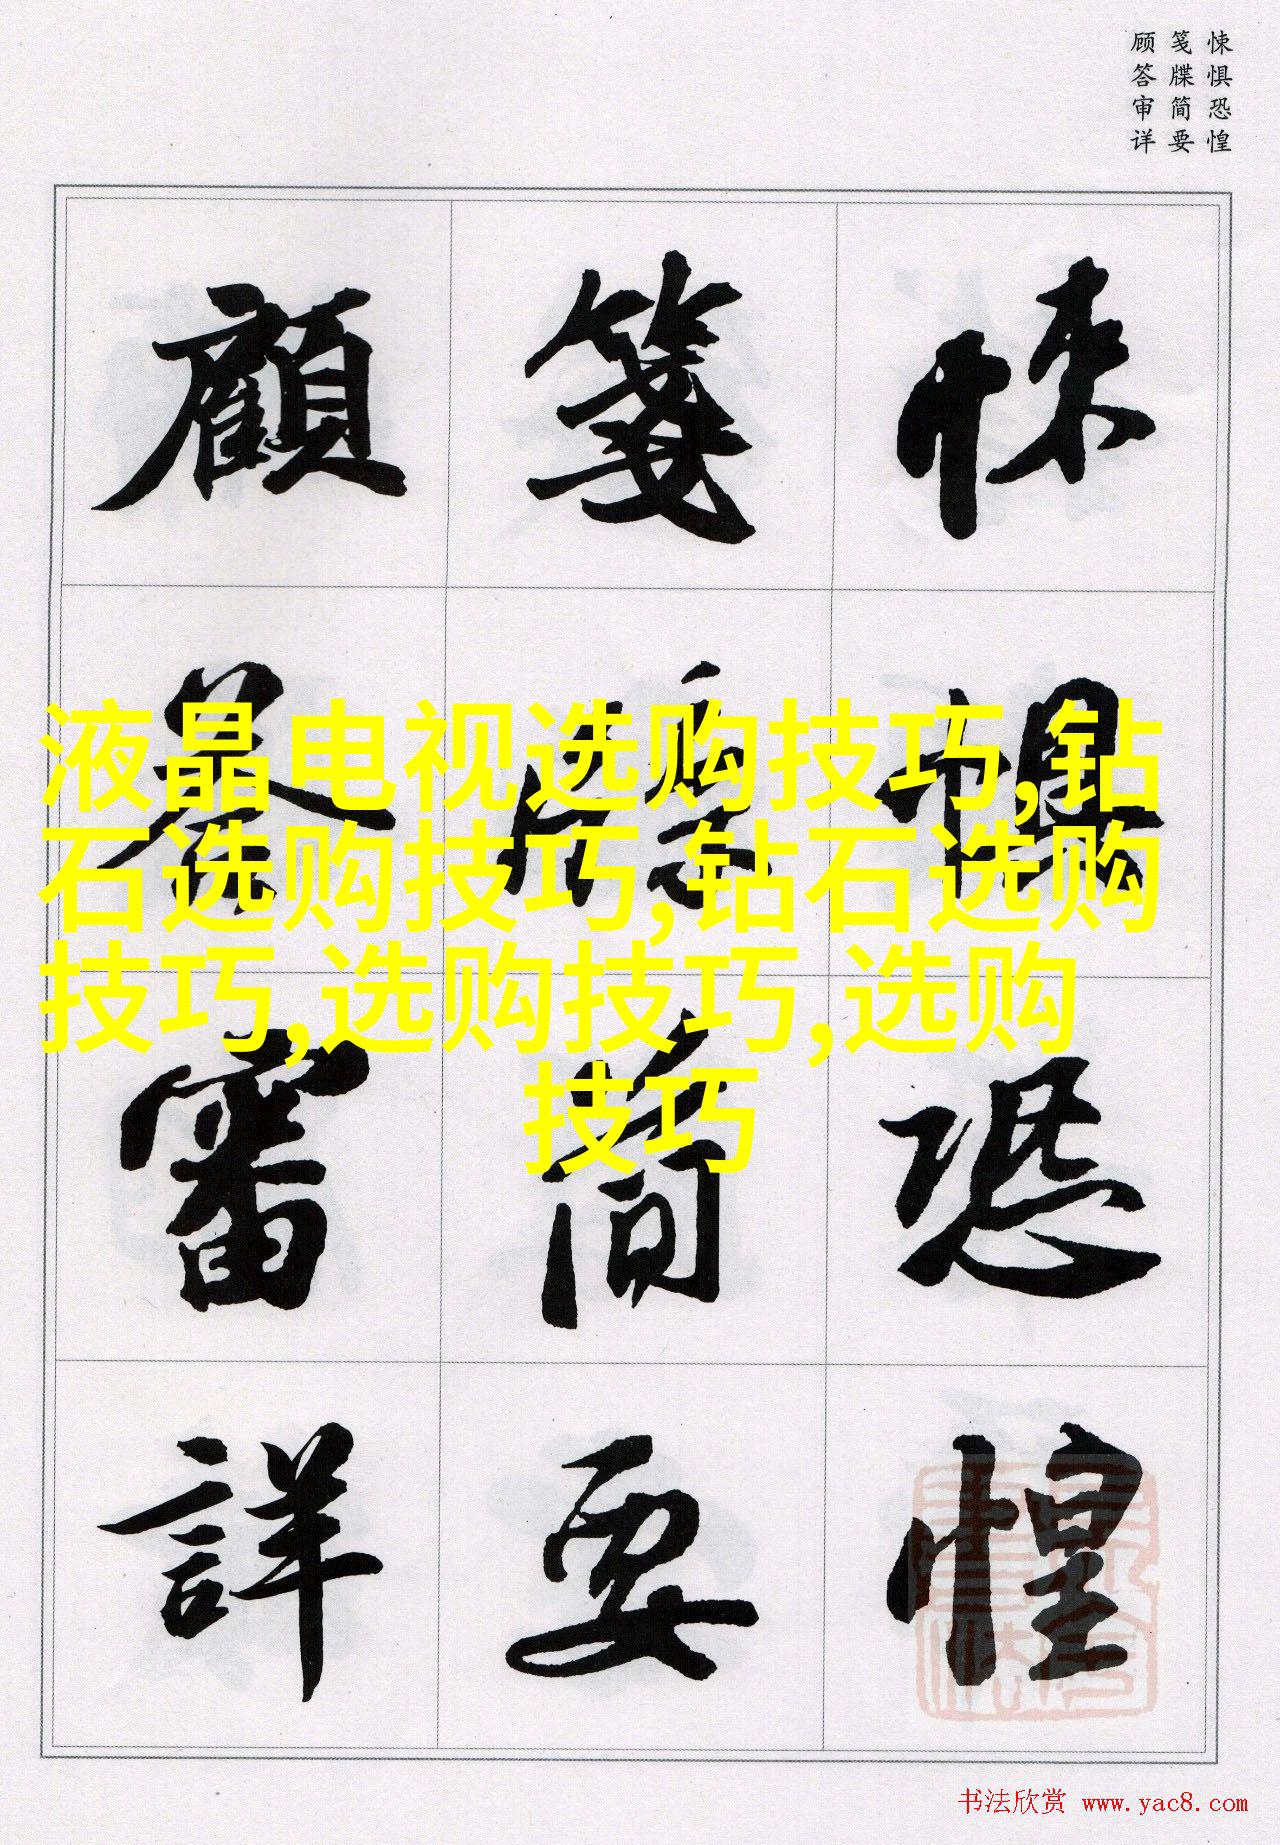 悚惧恐惶
笺牒简要
顾答审详
悚懼恐惶
箋牒簡要
顧答審詳
液晶电视选购技巧,钻
石选购技巧,钻石选购
技巧,选购技巧,选购
技巧
书法欣赏 www.yac8.com